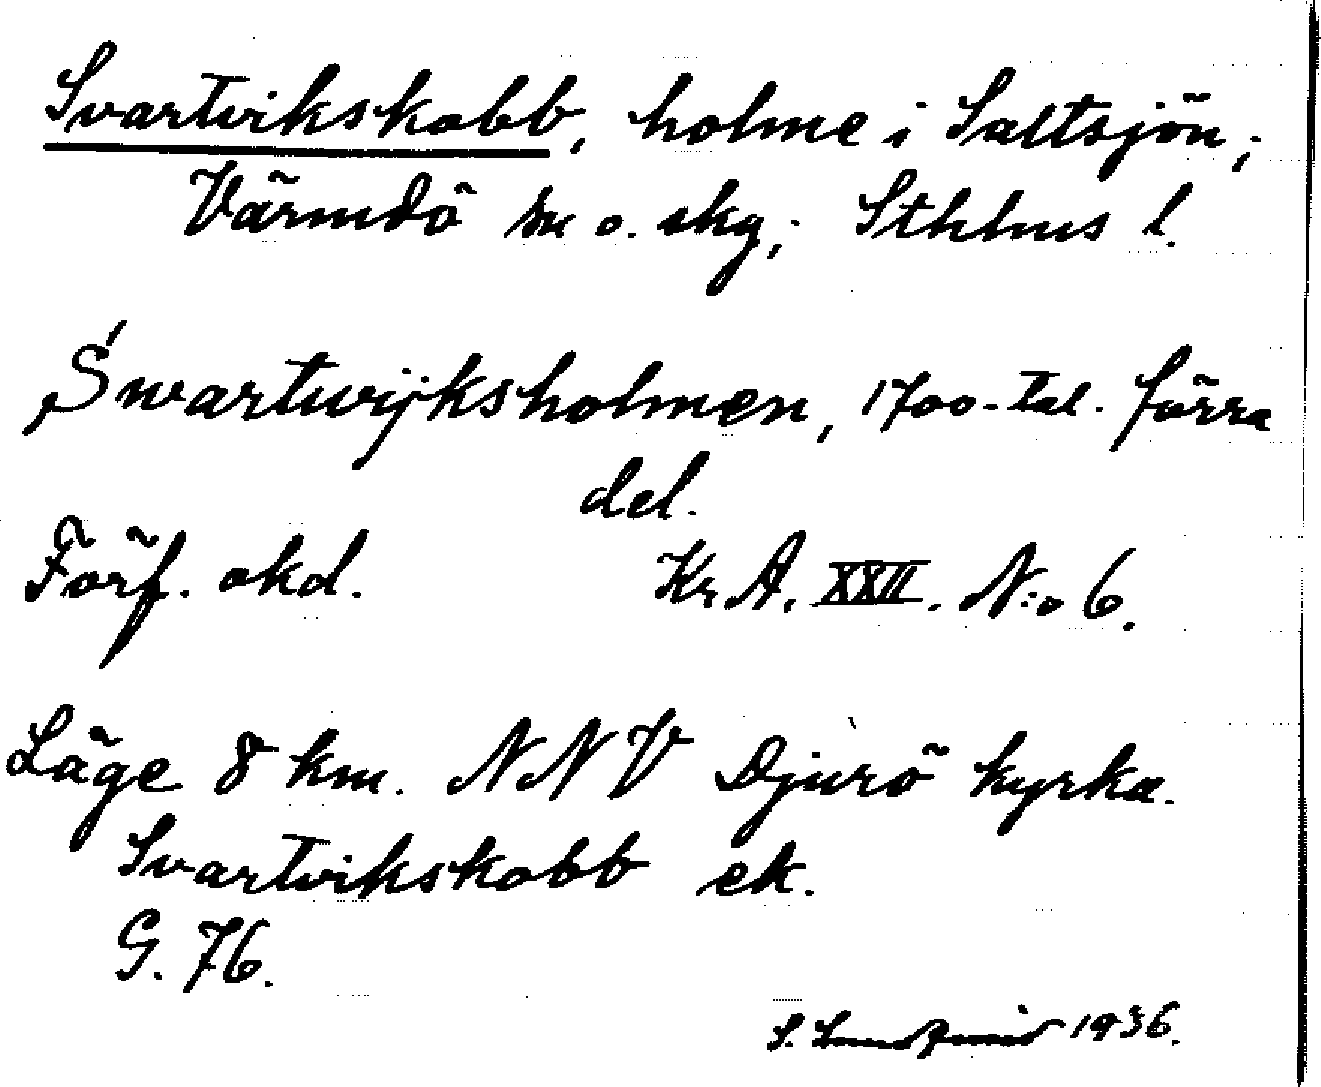 Svartvikskobb, holme i Saltsjön;
Värmdö sn o. skg; Sthlms l.
Swartwijksholmen, 1700-tal. förra
del.
Förf. okd. Kr. A. XXII. N:o 6.
Läge 8 km. NNV Djurö kyrka.
Svartvikskobb ek.
G. 76.
S. 1936.